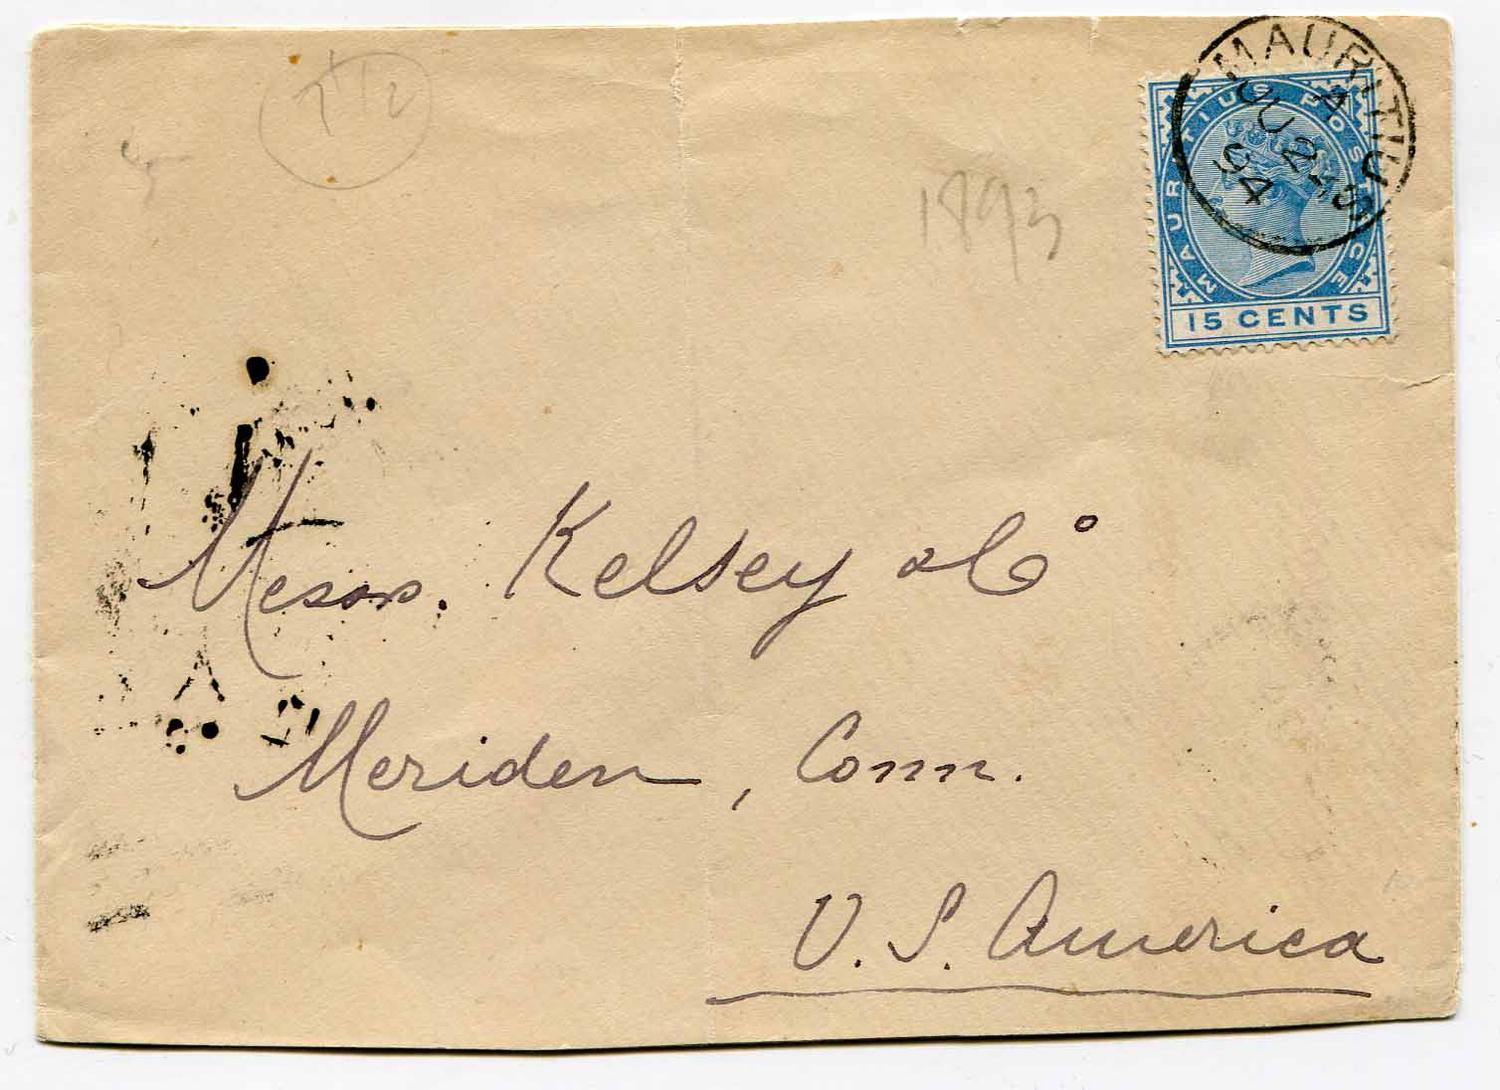 7 1/2
1893
MAURITIUS
A
JU 24
94
MAURITIUS POSTAGE
15 CENTS
Messrs. Kelsey & Co
Meriden, Conn.
U. S. America